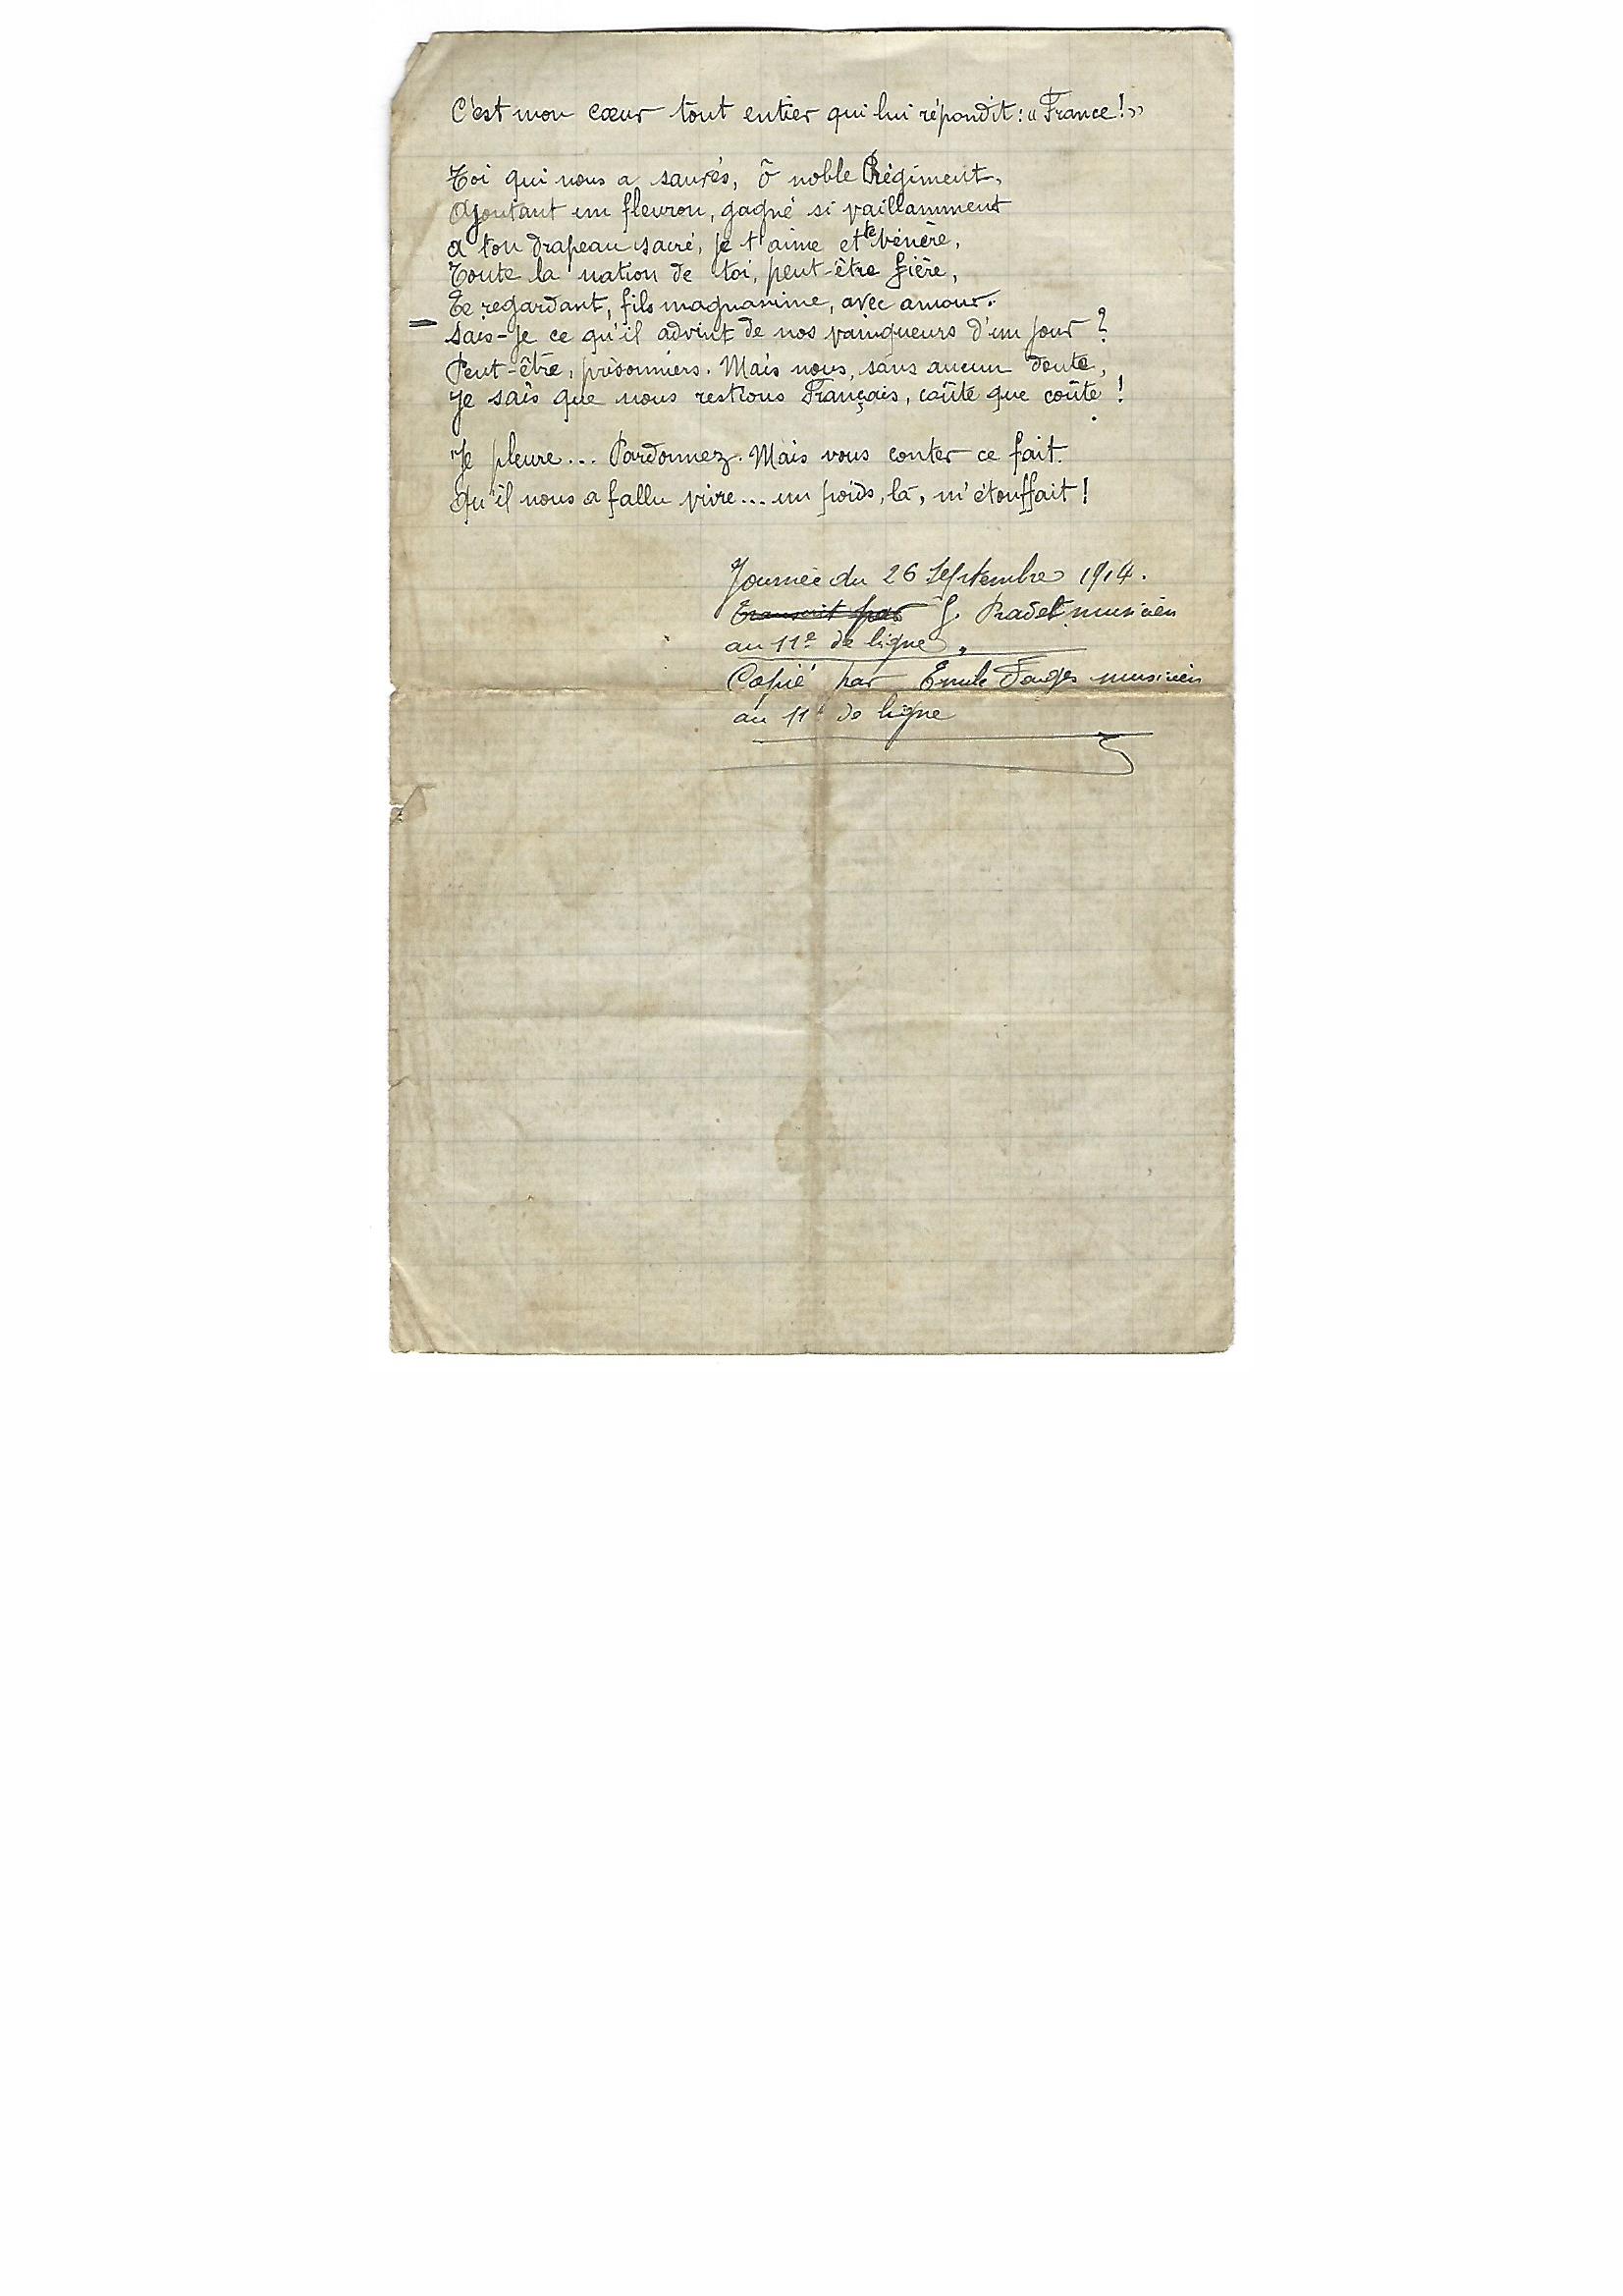 C'est mon cœur tout entier qui lui répondit : « France ! »
Toi qui nous a sauvés, ô noble Régiment,
Ajoutant un fleuron, gagné si vaillamment
A ton drapeau sacré, je t'aime et te vénère,
Toute la nation de toi, peut-être fière,
Te regardant, fils magnanime, avec amour.
Sais-je ce qu'il advint de nos vainqueurs d'un jour ?
Peut-être, prisonniers. Mais nous, sans aucun doute,
Je sais que nous restions Français, coûte que coûte !
Je pleure... Pardonnez. Mais vous conter ce fait
Qu'il nous a fallu vivre... un poids, là, m'étouffait !
Journée du 26 Septembre 1914.
Transcrit par J. Pradet musicien
au 11e de ligne.
Copié par Emile musicien
au 11e de ligne